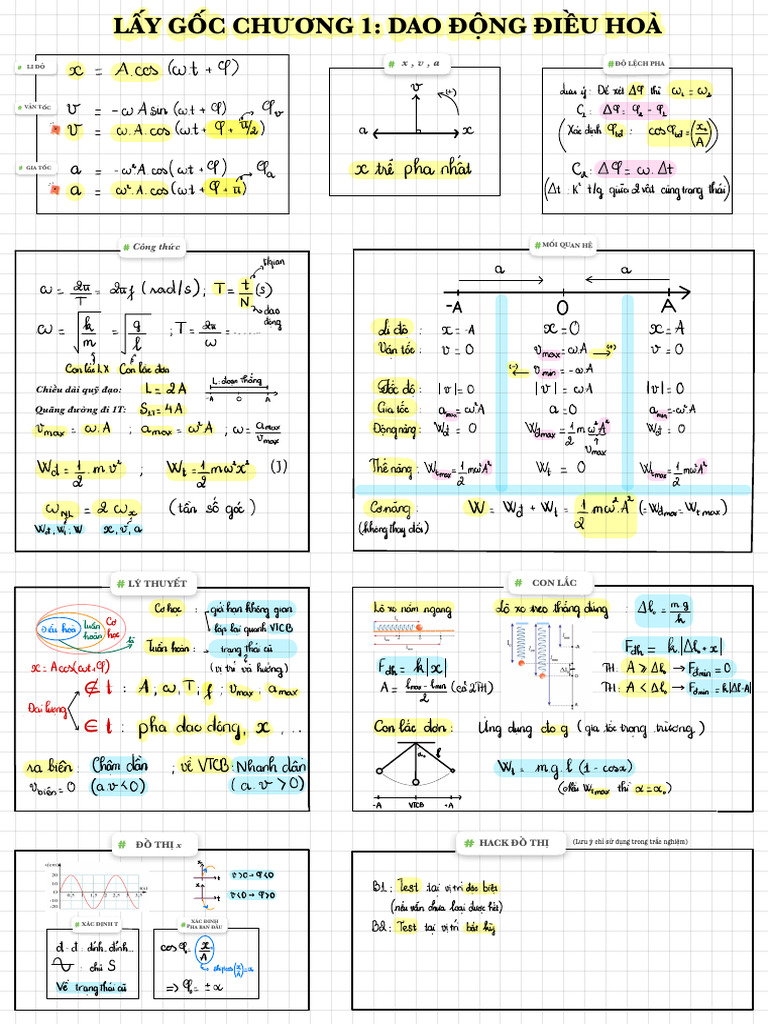 LẤY GỐC CHƯƠNG 1: DAO ĐỘNG ĐIỀU HOÀ
# LI ĐỘ
x = A.cos(ωt + φ)
# VẬN TỐC
v = -ωA sin(ωt + φ) φv
v = ω.A.cos(ωt + φ + π/2)
# GIA TỐC
a = -ω²A.cos(ωt + φ) φa
a = ω².A.cos(ωt + φ + π)
# x , v , a
v
(+)
a x
x trễ pha nhất
# ĐỘ LỆCH PHA
Lưu ý: Để xét Δφ thì ω₁ = ω₂
C₁: Δφ = φ₂ - φ₁
(Xác định φtđ: cosφtđ = (x₀/A))
C₂: Δφ = ω.Δt
(Δt: K² t/g giữa 2 vật cùng trạng thái)
# Công thức
ω = 2π/T = 2πf (rad/s); T = t/N (s)
tgian
dao động
ω = √(k/m) = √(g/l) ; T = 2π/ω = ......
Con lắc LX Con lắc đơn
Chiều dài quỹ đạo: L = 2A
L: đoạn thẳng
-A O A
Quãng đường đi 1T: S₁T = 4A
vmax = ω.A ; amax = ω²A ; ω = amax/vmax
Wđ = 1/2 . m v² ; Wt = 1/2 mω²x² (J)
ωNL = 2 ωx (tần số góc)
Wđ, Wt, W x, v, a
# MỐI QUAN HỆ
a a
-A O A
Li độ : x = -A x = 0 x = A
Vận tốc : v = 0 vmax = ωA (+) v = 0
(-) vmin = -ωA
Tốc độ : |v| = 0 |v| = ωA |v| = 0
Gia tốc : amax = ω²A a = 0 amin = -ω²A
Động năng : Wđ = 0 Wđmax = 1/2 m ω²A² Wđ = 0
vmax
Thế năng : Wtmax = 1/2 mω²A² Wt = 0 Wtmax = 1/2 mω²A²
Cơ năng : W = Wđ + Wt = 1/2 mω².A² (= Wđmax = Wtmax)
(không thay đổi)
# LÝ THUYẾT
Điều hoà Tuần hoàn Cơ học
Cơ học : giới hạn không gian
lặp lại quanh VTCB
Tuần hoàn : trạng thái cũ
(vị trí và hướng)
x = Acos(ωt+φ)
Đại lượng
∉ t : A, ω, T, f, vmax, amax
∈ t : pha dao động, x , ..
ra biên : Chậm dần ; về VTCB : Nhanh dần
vbiên = 0 (a.v<0) (a.v > 0)
# CON LẮC
Lò xo nằm ngang
Fđh = k|x|
A = (lmax - lmin)/2 (cả 2TH)
Lò xo treo thẳng đứng : Δl₀ = m.g/k
Fđh = k.|Δl₀ + x|
TH: A ≥ Δl₀ → Fđmin = 0
TH: A < Δl₀ → Fđmin = k|Δl-A|
Con lắc đơn : Ứng dụng đo g (gia tốc trọng trường)
α₀ l
-A VTCB +A
Wt = m.g.l (1 - cosα)
(nếu Wtmax thì α = α₀)
# ĐỒ THỊ x
v>0 → φ<0
v<0 → φ>0
# XÁC ĐỊNH T
đ - đ : đỉnh - đỉnh..
: chữ S
Về trạng thái cũ
# XÁC ĐỊNH PHA BAN ĐẦU
cos φ = x/A
shift cos(x/A) = α
=> φ₀ = ± α
# HACK ĐỒ THỊ (Lưu ý chỉ sử dụng trong trắc nghiệm)
B1: Test tại vị trí đặc biệt
(nếu vẫn chưa loại được hết)
B2: Test tại vị trí bất kỳ